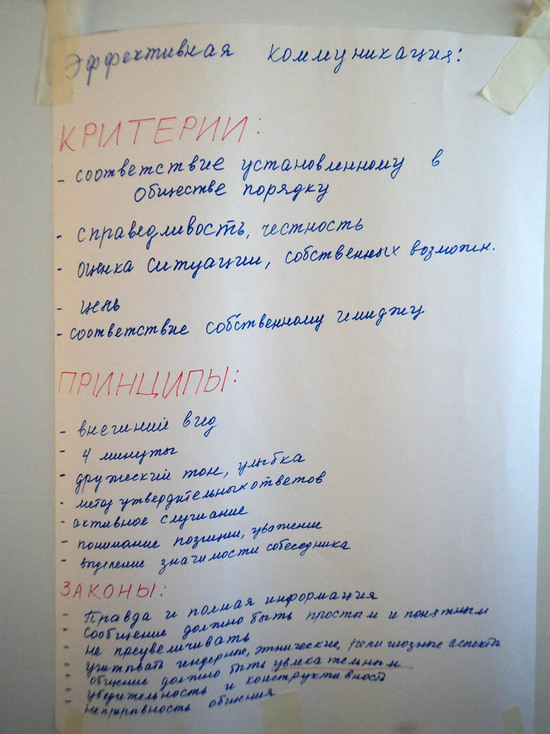 Эффективная коммуникация:
КРИТЕРИИ:
- соответствие установленному в
обществе порядку
- справедливость, честность
- оценка ситуации, собственных возможн.
- цель
- соответствие собственному имиджу
ПРИНЦИПЫ:
- внешний вид
- 4 минуты
- дружеский тон, улыбка
- метод утвердительных ответов
- активное слушание
- понимание позиции, уважение
- выделение значимости собеседника
ЗАКОНЫ:
- Правда и полная информация
- Сообщение должно быть простым и понятным
- не преувеличивать
- учитывать гендерные, этнические, религиозные аспекты
- общение должно быть увлекательным
- убедительность и конструктивность
- непрерывность общения